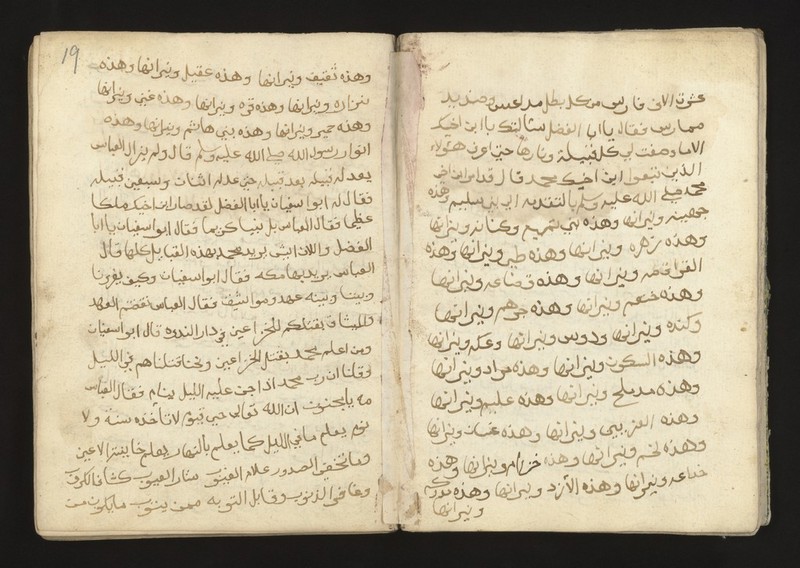 الاف فارس من كل بطل
ممارس فقال يا ابا الفضل سالتك يا ابن اخيك
الا ما وصفت لي كل قبيلة ونارها حتى اعرف هولاء
الذين تبعوا ابن اخيك محمد قال
محمد صلى الله عليه وسلم سليم وهذه
جهينه ونيرانها وهذه بني وكنانه ونيرانها
وهذه زهره ونيرانها وهذه طي ونيرانها وهذه
ونيرانها وهذه قضاعه ونيرانها
وهذه خثعم ونيرانها وهذه جرهم ونيرانها
وكنده ونيرانها ودوس ونيرانها وعك ونيرانها
وهذه السكون ونيرانها وهذه مراد ونيرانها
وهذه ونيرانها وهذه ونيرانها
وهذه ونيرانها وهذه غسان ونيرانها
وهذه لخم ونيرانها وهذه خزام ونيرانها وهذه
خزاعه ونيرانها وهذه الأزد ونيرانها وهذه
ونيرانها
19
وهذه ثقيف ونيرانها وهذه عقيل ونيرانها وهذه
فزاره ونيرانها وهذه قره ونيرانها وهذه غني ونيرانها
وهذه حمير ونيرانها وهذه بني هاشم ونيرانها وهذه
انوار رسول الله صلى الله عليه وسلم قال ولم يزل العباس
يعد له قبيله بعد قبيله حتى عد له اثنان وسبعين قبيله
فقال له ابو اسفيان يا ابا الفضل لقد صار ابن اخيك ملكا
عظيما فقال العباس بل نبيا كريما فقال ابو اسفيان يا ابا
الفضل والان ايش يريد محمد بهذه القبايل كلها قال
العباس يريد بها مكه فقال ابو اسفيان وكيف يغزونا
وبيننا وبينه عهد ومواثيق فقال العباس نقضتم العهد
والميثاق بقتلكم الخزاعين في دار الندوه قال ابو اسفيان
ومن اعلم محمد بقتل الخزاعين ونحنا قتلناهم في الليل
وقلنا ان رب محمد اذا جن عليه الليل ينام فقال العباس
مه يا مجنون ان الله تعالى حي قيوم لا تأخذه سنة ولا
نوم يعلم ما في الليل كما يعلم بالنهار يعلم خاينة الاعين
وما تخفي الصدور علام الغيوب ستار العيوب كشاف الكروب
وغافر الذنوب وقابل التوبه ممن يتوب ما يكون من